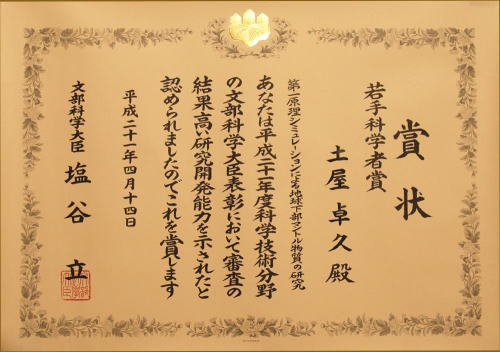 賞状
若手科学者賞
土屋卓久殿
第一原理シミュレーションによる地球下部マントル物質の研究
あなたは平成二十一年度科学技術分野
の文部科学大臣表彰において審査の
結果高い研究開発能力を示されたと
認められましたのでこれを賞します
平成二十一年四月十四日
文部科学大臣 塩谷 立